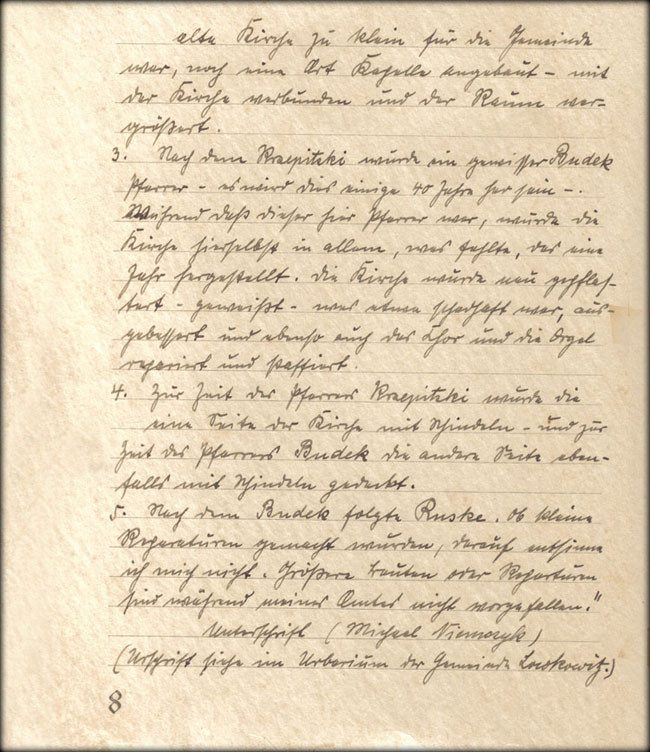 alte Kirche zu klein für die Gemeinde
war, noch eine Art Kapelle angebaut - mit
der Kirche verbunden und der Raum ver-
größert.
3. Nach dem Krzepitzki wurde ein gewisser Budek
Pfarrer - es wird dies einige 40 Jahre her sein -.
Während daß dieser hier Pfarrer war, wurde die
Kirche hierselbst in allem, was fehlte, das eine
Jahr hergestellt. Die Kirche wurde neu gepflas-
tert - geweißt - was etwa schadhaft war, aus-
gebessert und ebenso auch das Chor und die Orgel
repariert und staffiert.
4. Zur Zeit des Pfarrers Krzepitzki wurde die
eine Seite der Kirche mit Schindeln - und zur
Zeit des Pfarrers Budek die andere Seite eben-
falls mit Schindeln gedeckt.
5. Nach dem Budek folgte Ruske. Ob kleine
Reparaturen gemacht wurden, darauf entsinne
ich mich nicht. Größere Bauten oder Reparturen
sind während meines Amtes nicht vorgefallen."
Unterschrift (Michael Niemczyk)
(Urschrift siehe im Urbarium der Gemeinde Lowkowitz.)
8